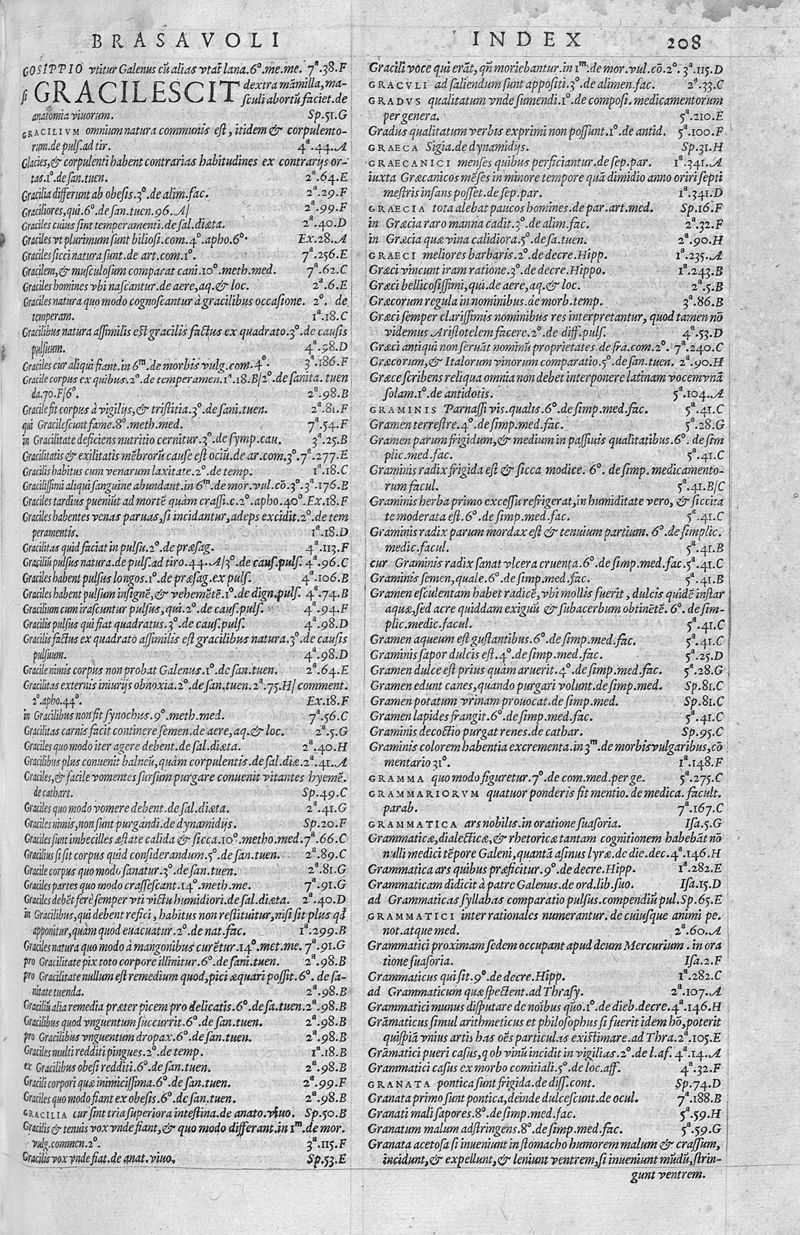 BRASAVOLI
GOSIPPIO vtitur Galenus cũ alias vtat' lana.6º.me.me. 7ª.38.F
si GRACILESCIT dextra mãmilla, ma-
sculi abortũ faciet.de
anatomia viuorum. Sp.51.G
GRACILIVM omnium natura communis est, itidem & corpulento-
rum.de puls.ad tir. 4ª.44.A
Graciles,& corpulenti habent contrarias habitudines ex contrarijs or-
tas.1º.de san.tuen. 2ª.64.E
Gracilia differunt ab obesis.3º.de alim.fac. 2ª.29.F
Graciliores,qui.6º.de san.tuen.96.A| 2ª.99.F
Graciles cuius sint temperamenti.de sal.diæta. 2ª.40.D
Graciles vt plurimum sunt biliosi.com.4º.apho.6º. Ex.28.A
Graciles sicci natura sunt.de art.com.1º. 7ª.256.E
Gracilem,& musculosum comparat cani.10º.meth.med. 7ª.62.C
Graciles homines vbi nascantur.de aere,aq.& loc. 2ª.6.E
Graciles natura quo modo cognoscantur à gracilibus occasione. 2º. de
temperam. 1ª.18.C
Gracilibus natura assimilis est gracilis factus ex quadrato.3º.de causis
pulsuum. 4ª.98.D
Graciles cur aliqui fiant.in 6m.de morbis vulg.com.4º. 3ª.186.F
Gracile corpus ex quibus.2º.de temperamen.1ª.18.B|2º.de sanita. tuen
da.70.F|6º. 2ª.98.B
Gracile fit corpus à vigilijs,& tristitia.3º.de sani.tuen. 2ª.81.F
qui Gracilescunt fame.8º.meth.med. 7ª.54.F
in Gracilitate deficiens nutritio cernitur.3º.de symp.cau. 3ª.25.B
Gracilitatis & exilitatis mẽbrorũ causæ est ociũ.de ar.com.3º.7ª.277.E
Gracilis habitus cum venarum laxitate.2º.de temp. 1ª.18.C
Gracilissimi aliqui sanguine abundant.in 6m.de mor.vul.cō.3º.3ª.176.B
Graciles tardius pueniũt ad mortẽ quàm crassi.c.2º.apho.40º.Ex.18.F
Graciles habentes venas paruas,si incidantur,adeps excidit.2º.de tem
peramentis. 1ª.18.D
Gracilitas quid faciat in pulsu.2º.de præsag. 4ª.113.F
Graciliũ pulsus natura.de puls.ad tiro.44.A|3º.de caus.puls. 4ª.96.C
Graciles habent pulsus longos.1º.de præsag.ex puls. 4ª.106.B
Graciles habent pulsum insignẽ,& vehemẽtẽ.1º.de dign.puls. 4ª.74.B
Gracilium cum irascuntur pulsus,qui.2º.de caus.puls. 4ª.94.F
Gracilis pulsus qui fiat quadratus.3º.de caus.puls. 4ª.98.D
Gracilis factus ex quadrato assimilis est gracilibus natura.3º.de causis
pulsuum. 4ª.98.D
Gracile nimis corpus non probat Galenus.1º.de san.tuen. 2ª.64.E
Gracilitas externis iniurijs obnoxia.2º.de san.tuen.2ª.75.H| comment.
2º.apho.44º. Ex.18.F
in Gracilibus non fit synochus.9º.meth.med. 7ª.56.C
Gracilitas carnis facit continere semen.de aere,aq.& loc. 2ª.5.G
Graciles quo modo iter agere debent.de sal.diæta. 2ª.40.H
Gracilibus plus conuenit balneũ,quàm corpulentis.de sal.diæ.2ª.41.A
Graciles,& facile vomentes sursum purgare conuenit vitantes hyemẽ.
de cathart. Sp.49.C
Graciles quo modo vomere debent.de sal.diæta. 2ª.41.G
Graciles nimis,non sunt purgandi.de dynamidijs. Sp.20.F
Graciles sunt imbecilles æstate calida & sicca.10º.metho.med.7ª.66.C
Gracilius si sit corpus quid considerandum.5º.de san.tuen. 2ª.89.C
Gracile corpus quo modo sanatur.3º.de san.tuen. 2ª.81.G
Graciles partes quo modo crassescant.14º.meth.me. 7ª.91.G
Graciles debẽt ferè semper vti victu humidiori.de sal.diæta. 2ª.40.D
in Gracilibus,qui debent refici, habitus non restituitur,nisi sit plus qd
apponitur,quàm quod euacuatur.2º.de nat.fac. 1ª.299.B
Graciles natura quo modo à mangonibus curẽtur.14º.met.me. 7ª.91.G
pro Gracilitate pix toto corpore illinitur.6º.de san.tuen. 2ª.98.B
pro Gracilitate nullum est remedium quod,pici æquari possit.6º. de sa-
nitate tuenda. 2ª.98.B
Graciliũ alia remedia præter picem pro delicatis.6º.de sa.tuen.2ª.98.B
Gracilibus quod vnguentum succurrit.6º.de san.tuen. 2ª.98.B
pro Gracilibus vnguentum dropax.6º.de san.tuen. 2ª.98.B
Graciles multi redditi pingues.2º.de temp. 1ª.18.B
ex Gracilibus obesi redditi.6º.de san.tuen. 2ª.98.B
Gracili corpori quæ inimicissima.6º.de san.tuen. 2ª.99.F
Graciles quo modo fiant ex obesis.6º.de san.tuen. 2ª.98.B
GRACILIA cur sint tria superiora intestina.de anato.viuo. Sp.50.B
Gracilis & tenuis vox vnde fiant,& quo modo differant.in 1m.de mor.
vulg.commen.2º. 3ª.115.F
Gracilis vox vnde fiat.de anat.viuo. Sp.53.E
INDEX 208
Gracili voce qui erãt, qñ moriebantur.in 1m.de mor.vul.cō.2º. 3ª.115.D
GRACVLI ad saliendum sunt appositi.3º.de alimen.fac. 2ª.33.C
GRADVS qualitatum vnde sumendi.1º.de composi.medicamentorum
per genera. 5ª.210.E
Gradus qualitatum verbis exprimi non possunt.1º.de antid. 5ª.100.F
GRAECA Sigia.de dynamidijs. Sp.31.H
GRAECANICI menses quibus perficiantur.de sep.par. 1ª.341.A
iuxta Græcanicos mẽses in minore tempore quã dimidio anno oriri septi
mestris infans posset.de sep.par. 1ª.341.D
GRAECIA tota alebat paucos homines.de par.art.med. Sp.16.F
in Græcia raro manna cadit.3º.de alim.fac. 2ª.32.F
in Græcia quæ vina calidiora.5º.de sa.tuen. 2ª.90.H
GRAECI meliores barbaris.2º.de decre.Hipp. 1ª.235.A
Græci vincunt iram ratione.3º.de decre.Hippo. 1ª.243.B
Græci bellicosissimi,qui.de aere,aq.& loc. 2ª.5.B
Græcorum regula in nominibus.de morb.temp. 3ª.86.B
Græci semper clarissimis nominibus res interpretantur, quod tamen nō
videmus Aristotelem facere.2º.de diff.puls. 4ª.53.D
Græci antiqui non seruãt nominũ proprietates.de fra.com.2º. 7ª.240.C
Græcorum,& Italorum vinorum comparatio.5º.de san.tuen. 2ª.90.H
Græce scribens reliqua omnia non debet interponere latinam vocem vnã
solam.1º.de antidotis. 5ª.104.A
GRAMINIS Parnassi vis.qualis.6º.de simp.med.fac. 5ª.41.C
Gramen terrestre.4º.de simp.med.fac. 5ª.28.G
Gramen parum frigidum,& medium in passiuis qualitatibus.6º. de sim
plic.med.fac. 5ª.41.C
Graminis radix frigida est & sicca modice. 6º. de simp. medicamento-
rum facul. 5ª.41.B|C
Graminis herba primo excessu refrigerat,in humiditate vero, & siccita
te moderata est.6º.de simp.med.fac. 5ª.41.C
Graminis radix parum mordax est & tenuium partium. 6º.de simplic.
medic.facul. 5ª.41.B
cur Graminis radix sanat vlcera cruenta.6º.de simp.med.fac.5ª.41.C
Graminis semen,quale.6º.de simp.med.fac. 5ª.41.B
Gramen esculentam habet radicẽ,vbi mollis fuerit, dulcis quidẽ instar
aquæ,sed acre quiddam exiguũ & subacerbum obtinẽtẽ. 6º. de sim-
plic.medic.facul. 5ª.41.C
Gramen aqueum est gustantibus.6º.de simp.med.fac. 5ª.41.C
Graminis sapor dulcis est.4º.de simp.med.fac. 5ª.25.D
Gramen dulce est prius quàm aruerit.4º.de simp.med.fac. 5ª.28.G
Gramen edunt canes,quando purgari volunt.de simp.med. Sp.81.C
Gramen potatum vrinam prouocat.de simp.med. Sp.81.C
Gramen lapides frangit.6º.de simp.med.fac. 5ª.41.C
Graminis decoctio purgat renes.de cathar. Sp.95.C
Graminis colorem habentia excrementa.in 3m.de morbis vulgaribus,cō
mentario 31º. 1ª.148.F
GRAMMA quo modo figuretur.7º.de com.med.per ge. 5ª.275.C
GRAMMARIORVM quatuor ponderis fit mentio.de medica. facult.
parab. 7ª.167.C
GRAMMATICA ars nobilis.in oratione suasoria. Isa.5.G
Grammaticæ,dialecticæ,& rhetoricæ tantam cognitionem habebãt nō
nulli medici tẽpore Galeni,quantã asinus lyræ.de die.dec.4ª.146.H
Grammatica ars quibus præficitur.9º.de decre.Hipp. 1ª.282.E
Grammaticam didicit à patre Galenus.de ord.lib.suo. Isa.15.D
ad Grammaticas syllabas comparatio pulsus.compendiũ pul.Sp.65.E
GRAMMATICI inter rationales numerantur. de cuiusque animi pe.
not.atque med. 2ª.60.A
Grammatici proximam sedem occupant apud deum Mercurium. in ora
tione suasoria. Isa.2.F
Grammaticus qui sit.9º.de decre.Hipp. 1ª.282.C
ad Grammaticum quæ spectent.ad Thrasy. 2ª.107.A
Grammatici munus disputare de noībus quo.1º.de dieb.decre.4ª.146.H
Grãmaticus simul arithmeticus et philosophus si fuerit idem hō,poterit
quispiã vnius artis has oēs particulas existimare.ad Thra.2ª.105.E
Grãmatici pueri casus,q ob vinũ incidit in vigilias.2º.de l.af. 4ª.14.A
Grammatici casus ex morbo comitiali.5º.de loc.aff. 4ª.32.F
GRANATA pontica sunt frigida.de diss.cont. Sp.74.D
Granata primo sunt pontica,deinde dulcescunt.de ocul. 7ª.188.B
Granati mali sapores.8º.de simp.med.fac. 5ª.59.H
Granatum malum adstringens.8º.de simp.med.fac. 5ª.59.G
Granata acetosa si inueniunt in stomacho humorem malum & crassum,
incidunt,& expellunt,& leniunt ventrem,si inueniunt mũdũ,strin-
gunt ventrem.